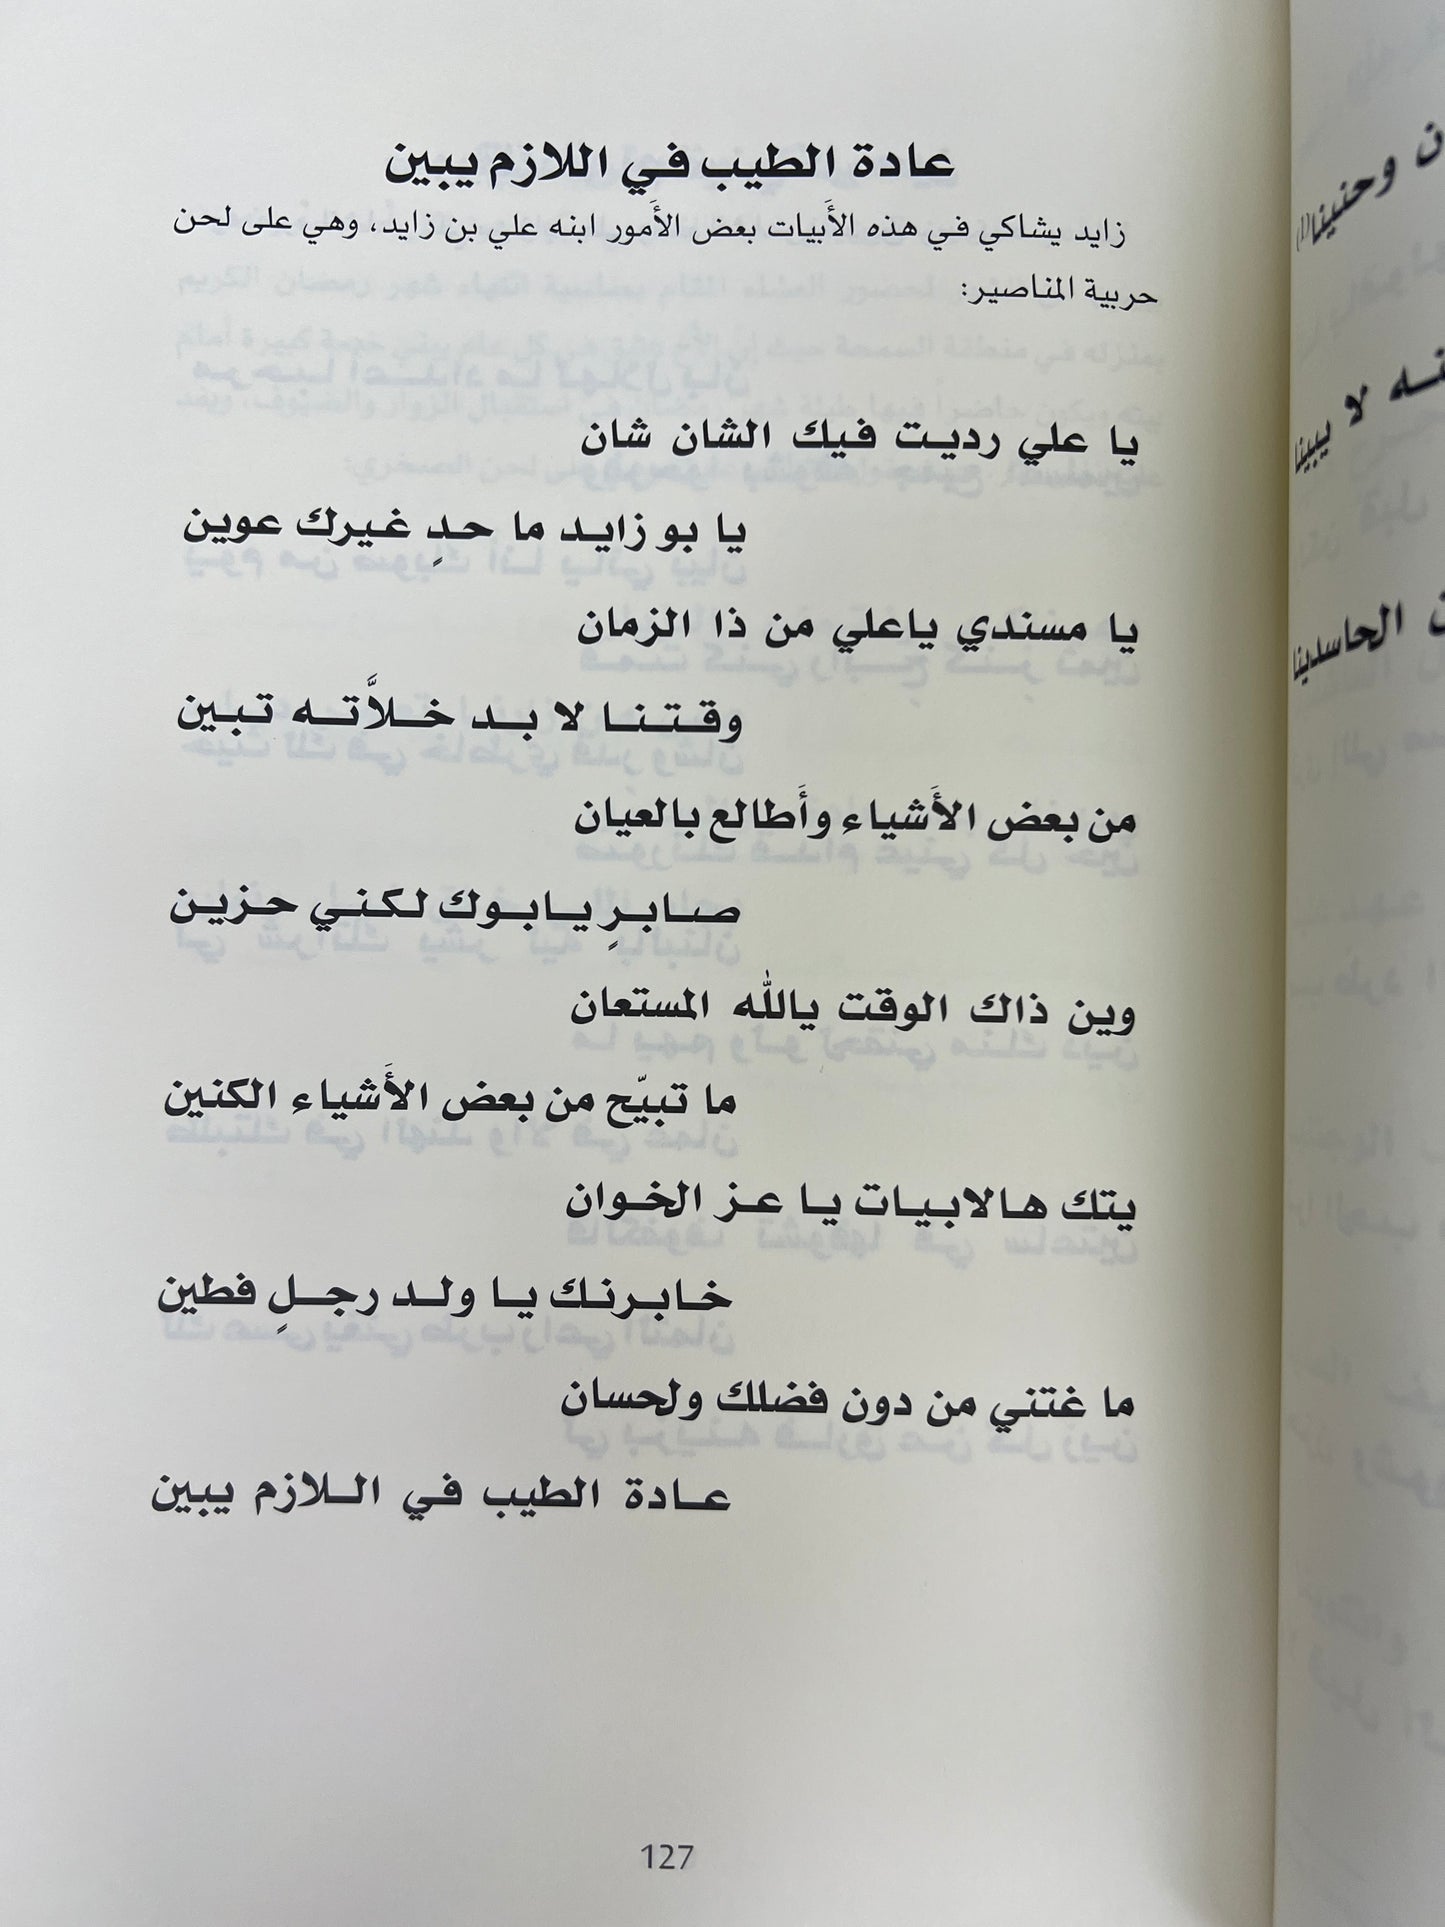 عادة الطيب في اللازم يبين
زايد يشاكي في هذه الأَبيات بعض الأَمور ابنه علي بن زايد، وهي على لحن
حربية المناصير:
يا علي رديت فيك الشان شان
يا بو زايد ما حدٍ غيرك عوين
يا مسندي ياعلي من ذا الزمان
وقتنا لا بد خلاَّته تبين
من بعض الأَشياء وأَطالع بالعيان
صابرٍ يابوك لكني حزين
وين ذاك الوقت يالله المستعان
ما تبيّح من بعض الأَشياء الكنين
يتك هالابيات يا عز الخوان
خابرنك يا ولد رجلٍ فطين
ما غتني من دون فضلك ولحسان
عادة الطيب في اللازم يبين
127
ن وحنينا(1)
لا يبينا
الحاسدينا